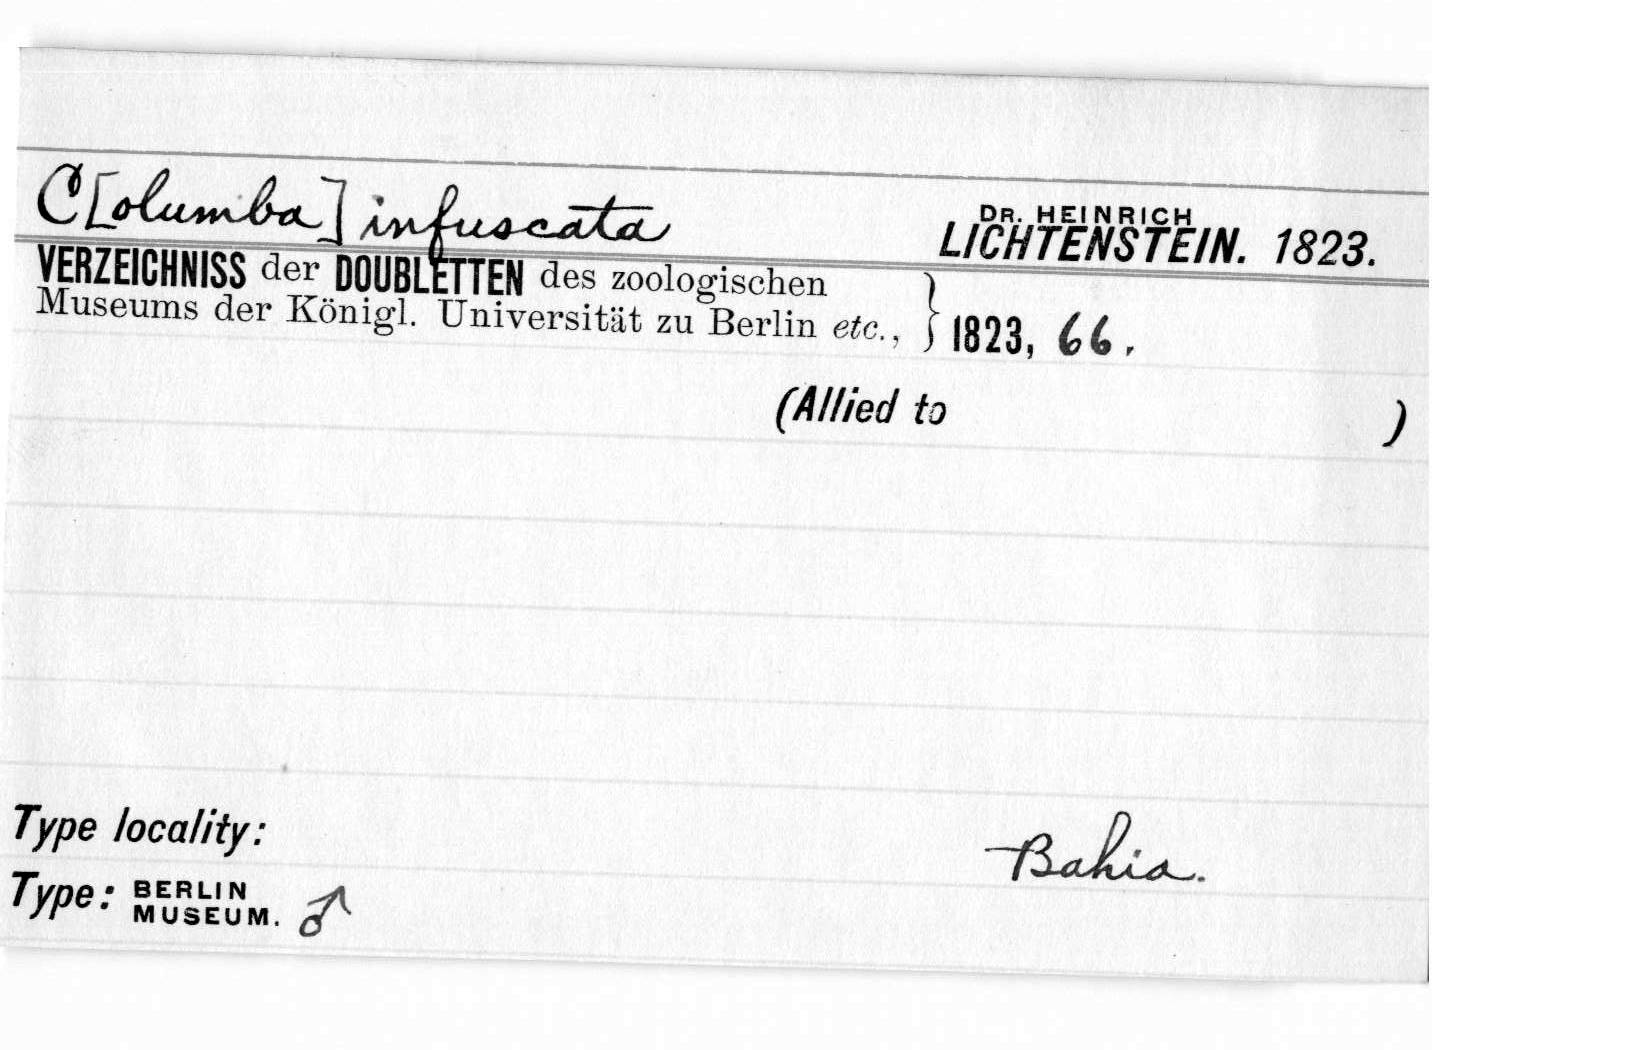 C[olumba] infuscata
DR. HEINRICH
LICHTENSTEIN. 1823.
VERZEICHNISS der DOUBLETTEN des zoologischen
Museums der Königl. Universität zu Berlin etc., } 1823, 66.
(Allied to )
Type locality: Bahia.
Type: BERLIN
MUSEUM. ♂